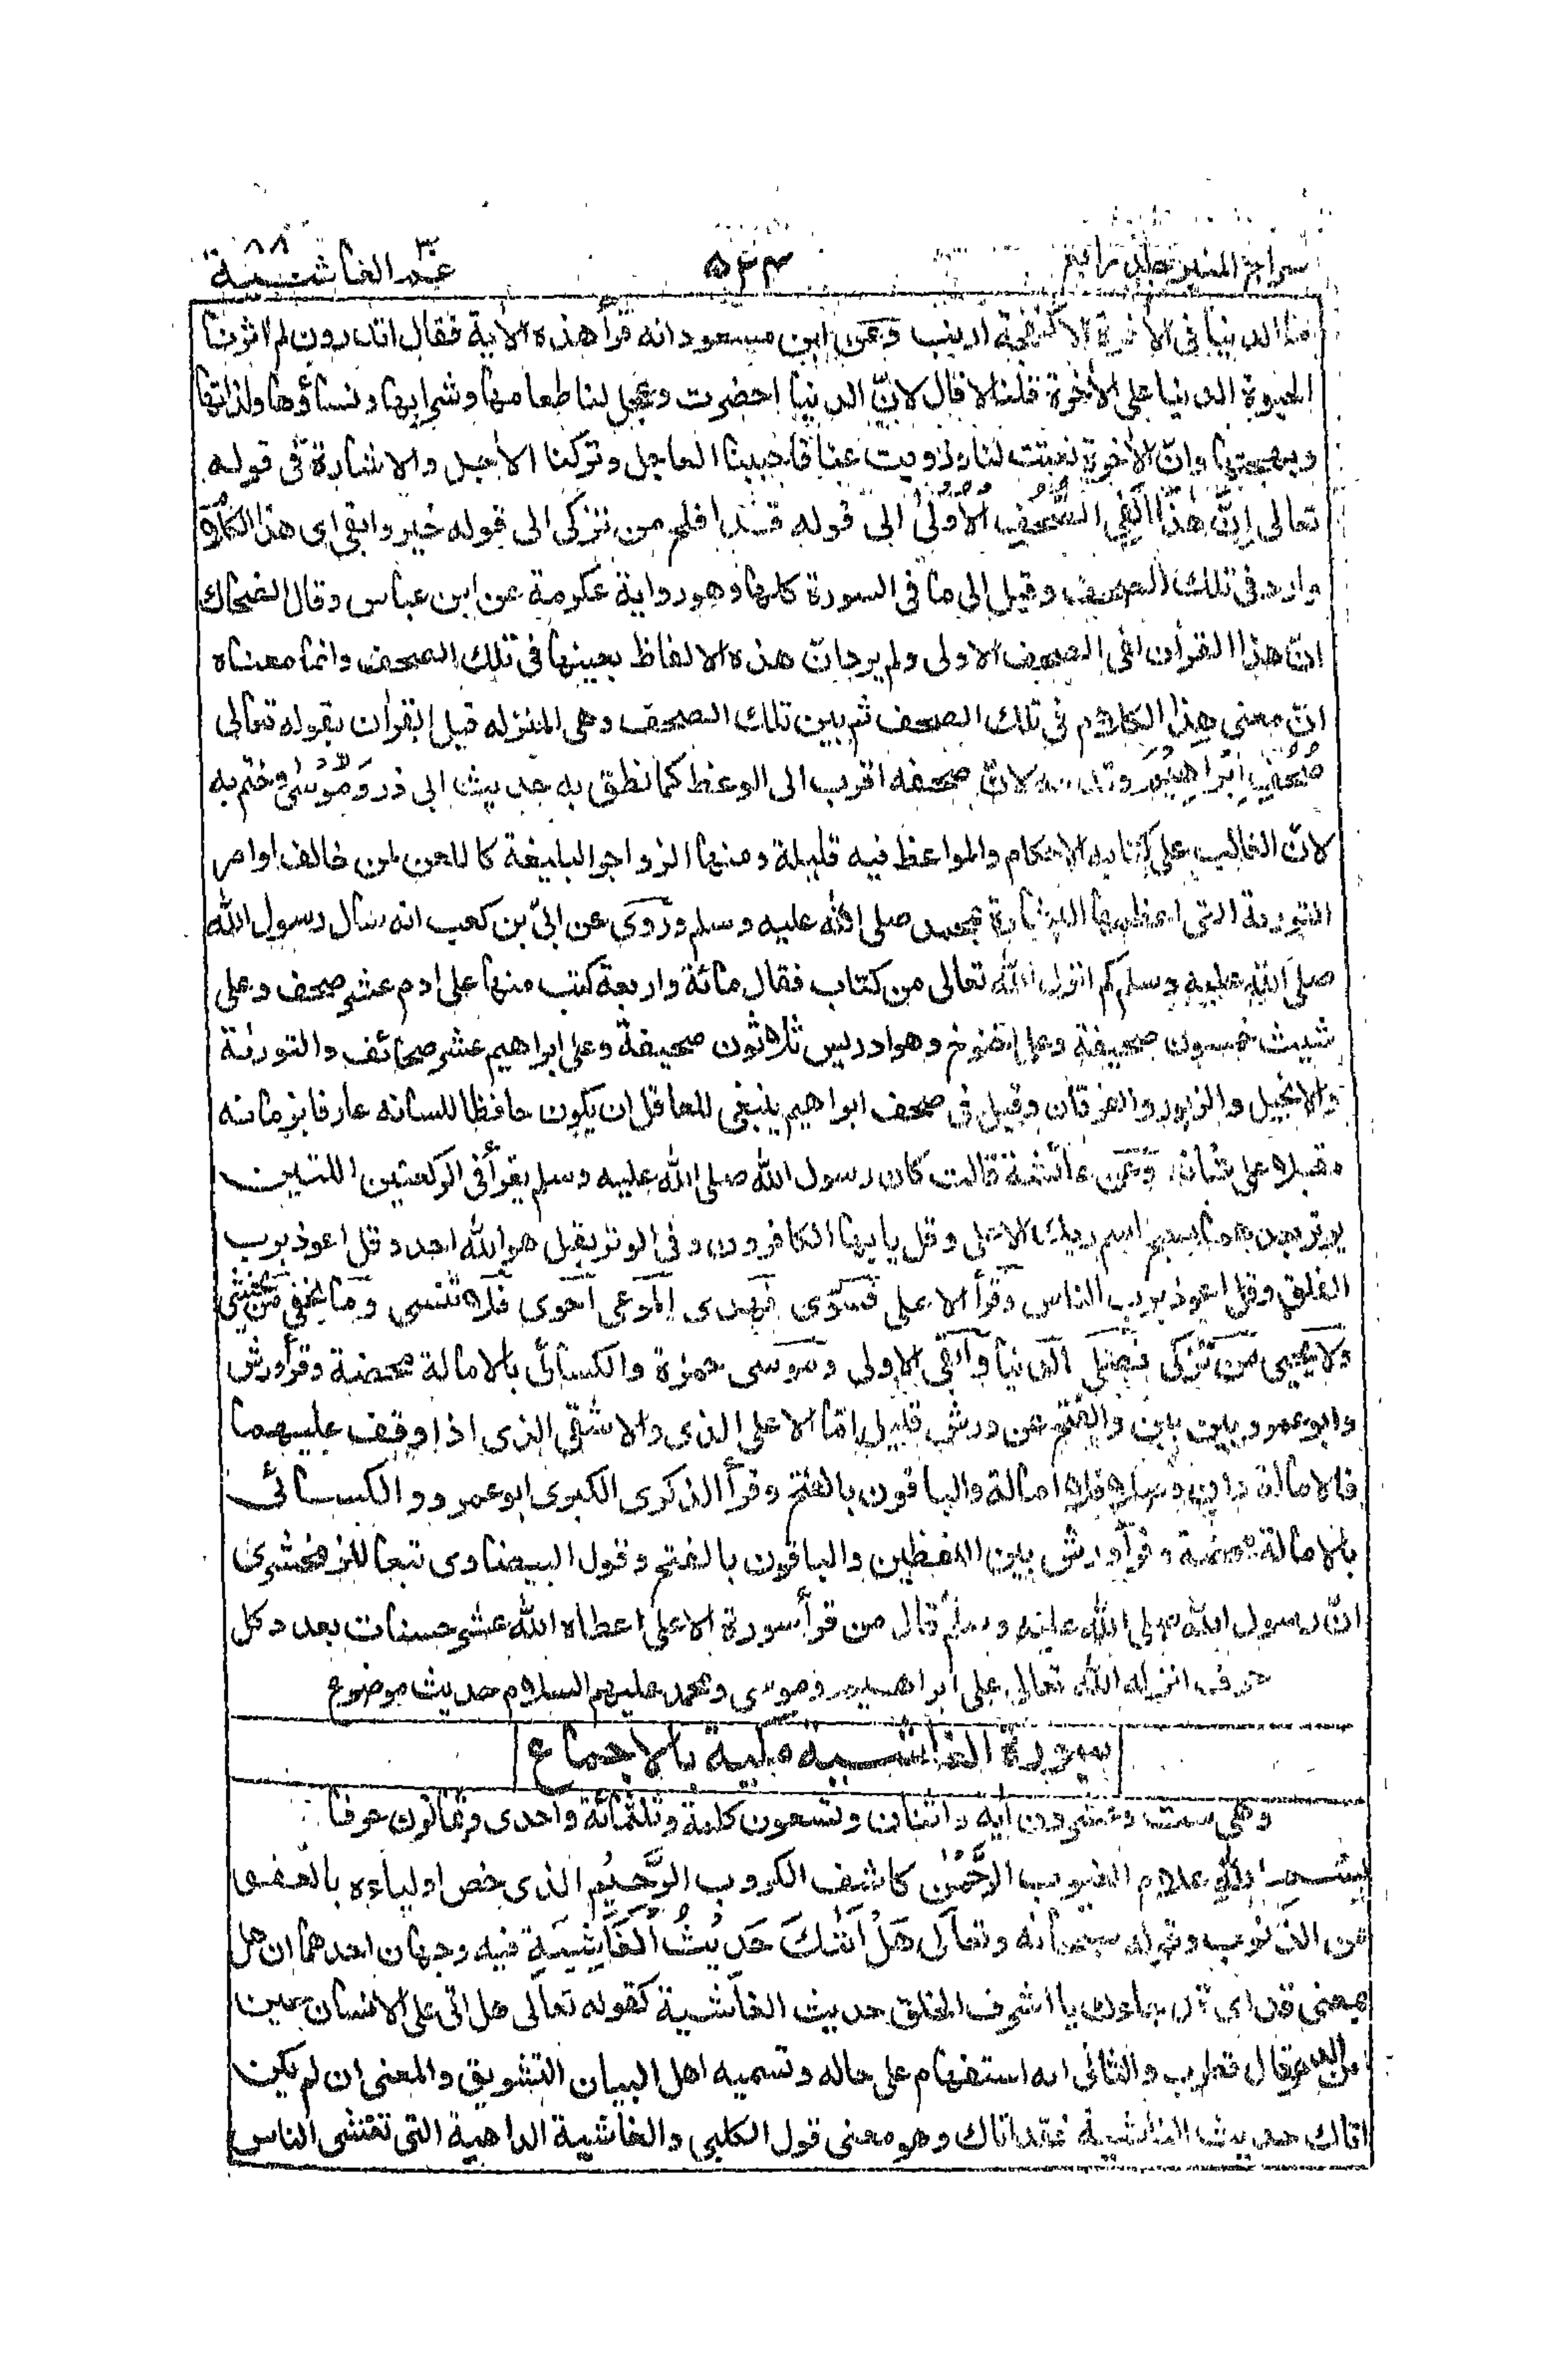 سراج المنير جلد رابع ۵۴۳ عمّ الغاشية ۸۸
ما الدنيا فى الاخرة الا كنفحة ارنب وعن ابن مسعود انه قرأ هذه الاية فقال اتدرون لم اثرنا
الحيوة الدنيا على الأخرة قلنا لا قال لانّ الدنيا احضرت وعجل لنا طعامها وشرابها ونساؤها ولذاتها
وبهجتها وانّ الأخرة نعتت لنا وزويت عنا فاحببنا العاجل وتركنا الأجل والاشارة فى قوله
تعالى اِنَّ هٰذَا لَفِى الصُّحُفِ الْاُوْلٰى الى قوله قد افلح من تزكى الى قوله خير وابقى اى هذا الكلام
وارد فى تلك الصحف وقيل الى ما فى السورة كلها وهو رواية عكرمة عن ابن عباس وقال الضحاك
انّ هذا القرأن لفى الصحف الاولى ولم يرد انّ هذه الالفاظ بعينها فى تلك الصحف وانما معناه
انّ معنى هذا الكلام فى تلك الصحف ثم بين تلك الصحف وهى المنزله قبل القرأن بقوله تعالى
صُحُفِ اِبْرَاهِيْمَ وقدمه لانّ صحفه اقرب الى الوعظ كما نطق به حديث ابى ذر وَمُوْسٰى وختم به
لانّ الغالب على كتابه الاحكام والمواعظ فيه قليلة ومنها الزواجر البليغة كاللعن لمن خالف اوامر
التورىة التى اعظمها البشارة بمحمد صلى الله عليه وسلم وروى عن ابىّ بن كعب انه سأل رسول الله
صلى الله عليه وسلم كم انزل الله تعالى من كتاب فقال مائة واربعة كتب منها على ادم عشر صحف وعلى
شيث خمسون صحيفة وعلى اخنوخ وهو ادريس ثلاثون صحيفة وعلى ابراهيم عشر صحائف والتورىة
والانجيل والزبور والفرقان وقيل فى صحف ابراهيم ينبغى للعاقل ان يكون حافظا للسانه عارفا بزمانه
مقبلا على شانه وعن عائشة قالت كان رسول الله صلى الله عليه وسلم يقرأ فى الركعتين اللتين
يوتر بعدهما بسبح اسم ربك الاعلى وقل يايها الكافرون وفى الوتر بقل هو الله احد وقل اعوذ برب
الفلق وقل اعوذ برب الناس وقرأ الاعلى فسوّى فهدى المرعى احوى فلا تنسى وما يخفى من يخشى
ولا يحيى من تزكى فصلى الدنيا وابقى الاولى وموسى حمزة والكسائى بالامالة محضة وقرأ ورش
وابو عمرو بين بين والفتح عن ورش قليل امّا الاعلى الذى والاشقى الذى اذا وقف عليهما
فالامالة وان وصل فلا امالة والباقون بالفتح وقرأ الذكرى الكبرى ابو عمرو والكسائى
بالامالة محضة وقرأ ورش بين اللفظين والباقون بالفتح وقول البيضاوى تبعا للزمخشرى
انّ رسول الله صلى الله عليه وسلم قال من قرأ سورة الاعلى اعطاه الله عشر حسنات بعدد كل
حرف انزله الله تعالى على ابراهيم وموسى ومحمد عليهم السلام حديث موضوع
سورة الغاشيه مكية بالاجماع
وهى ست وعشرون اية واثنان وتسعون كلمة وثلثمائة واحدى وثمانون حرفا
بِسْمِ اللّٰهِ علام الغيوب الرَّحْمٰنِ كاشف الكروب الرَّحِيْمِ الذى خص اولياءه بالعفو
عن الذنوب وقوله سبحانه وتعالى هَلْ اَتٰىكَ حَدِيْثُ الْغَاشِيَةِ فيه وجهان احدهما ان هل
بمعنى قد اى قد جاءك يا اشرف الخلق حديث الغاشية كقوله تعالى هل اتى على الانسان حين
من الدهر قال قطرب والثانى انه استفهام على حاله وتسميه اهل البيان التشويق والمعنى ان لم يكن
اتاك حديث الغاشية فقد اتاك وهو معنى قول الكلبى والغاشية الداهية التى تغشى الناس